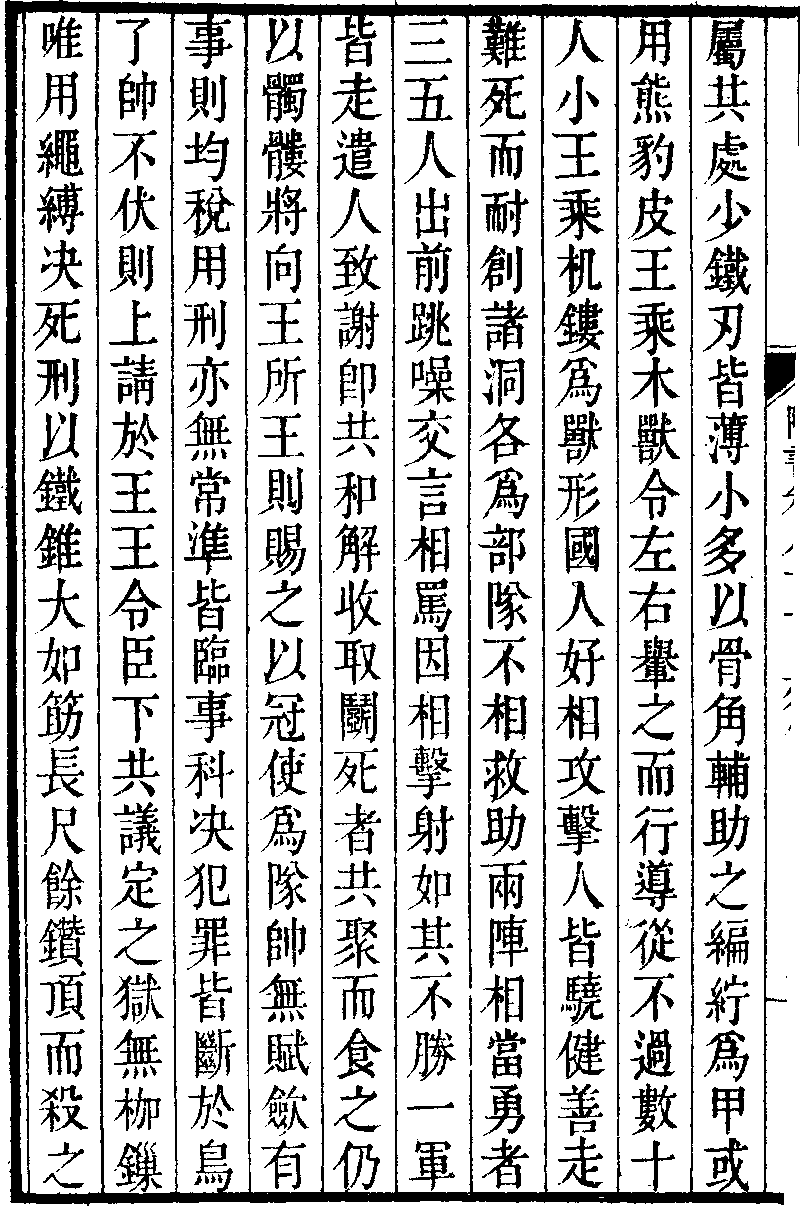 屬共處少鐵刃皆薄小多以骨角輔助之編紵爲甲或
用熊豹皮王乘木獸令左右轝之而行導從不過數十
人小王乘机鏤爲獸形國人好相攻擊人皆驍健善走
難死而耐創諸洞各爲部隊不相救助兩陣相當勇者
三五人出前跳噪交言相罵因相擊射如其不勝一軍
皆走遣人致謝卽共和解收取鬭死者共聚而食之仍
以髑髏將向王所王則賜之以冠使爲隊帥無賦斂有
事則均稅用刑亦無常準皆臨事科決犯罪皆斷於鳥
了帥不伏則上請於王王令臣下共議定之獄無枷鏁
唯用繩縛决死刑以鐵錐大如筯長尺餘鑽頂而殺之